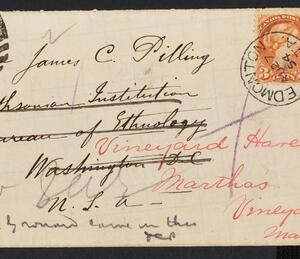 James C. Pilling
thsonian Institution
ureau of Ethnology
Washington D.C
U.S.A-
Vineyard Have
Marthas
Vineya
Ma
EDMONTON
came in this